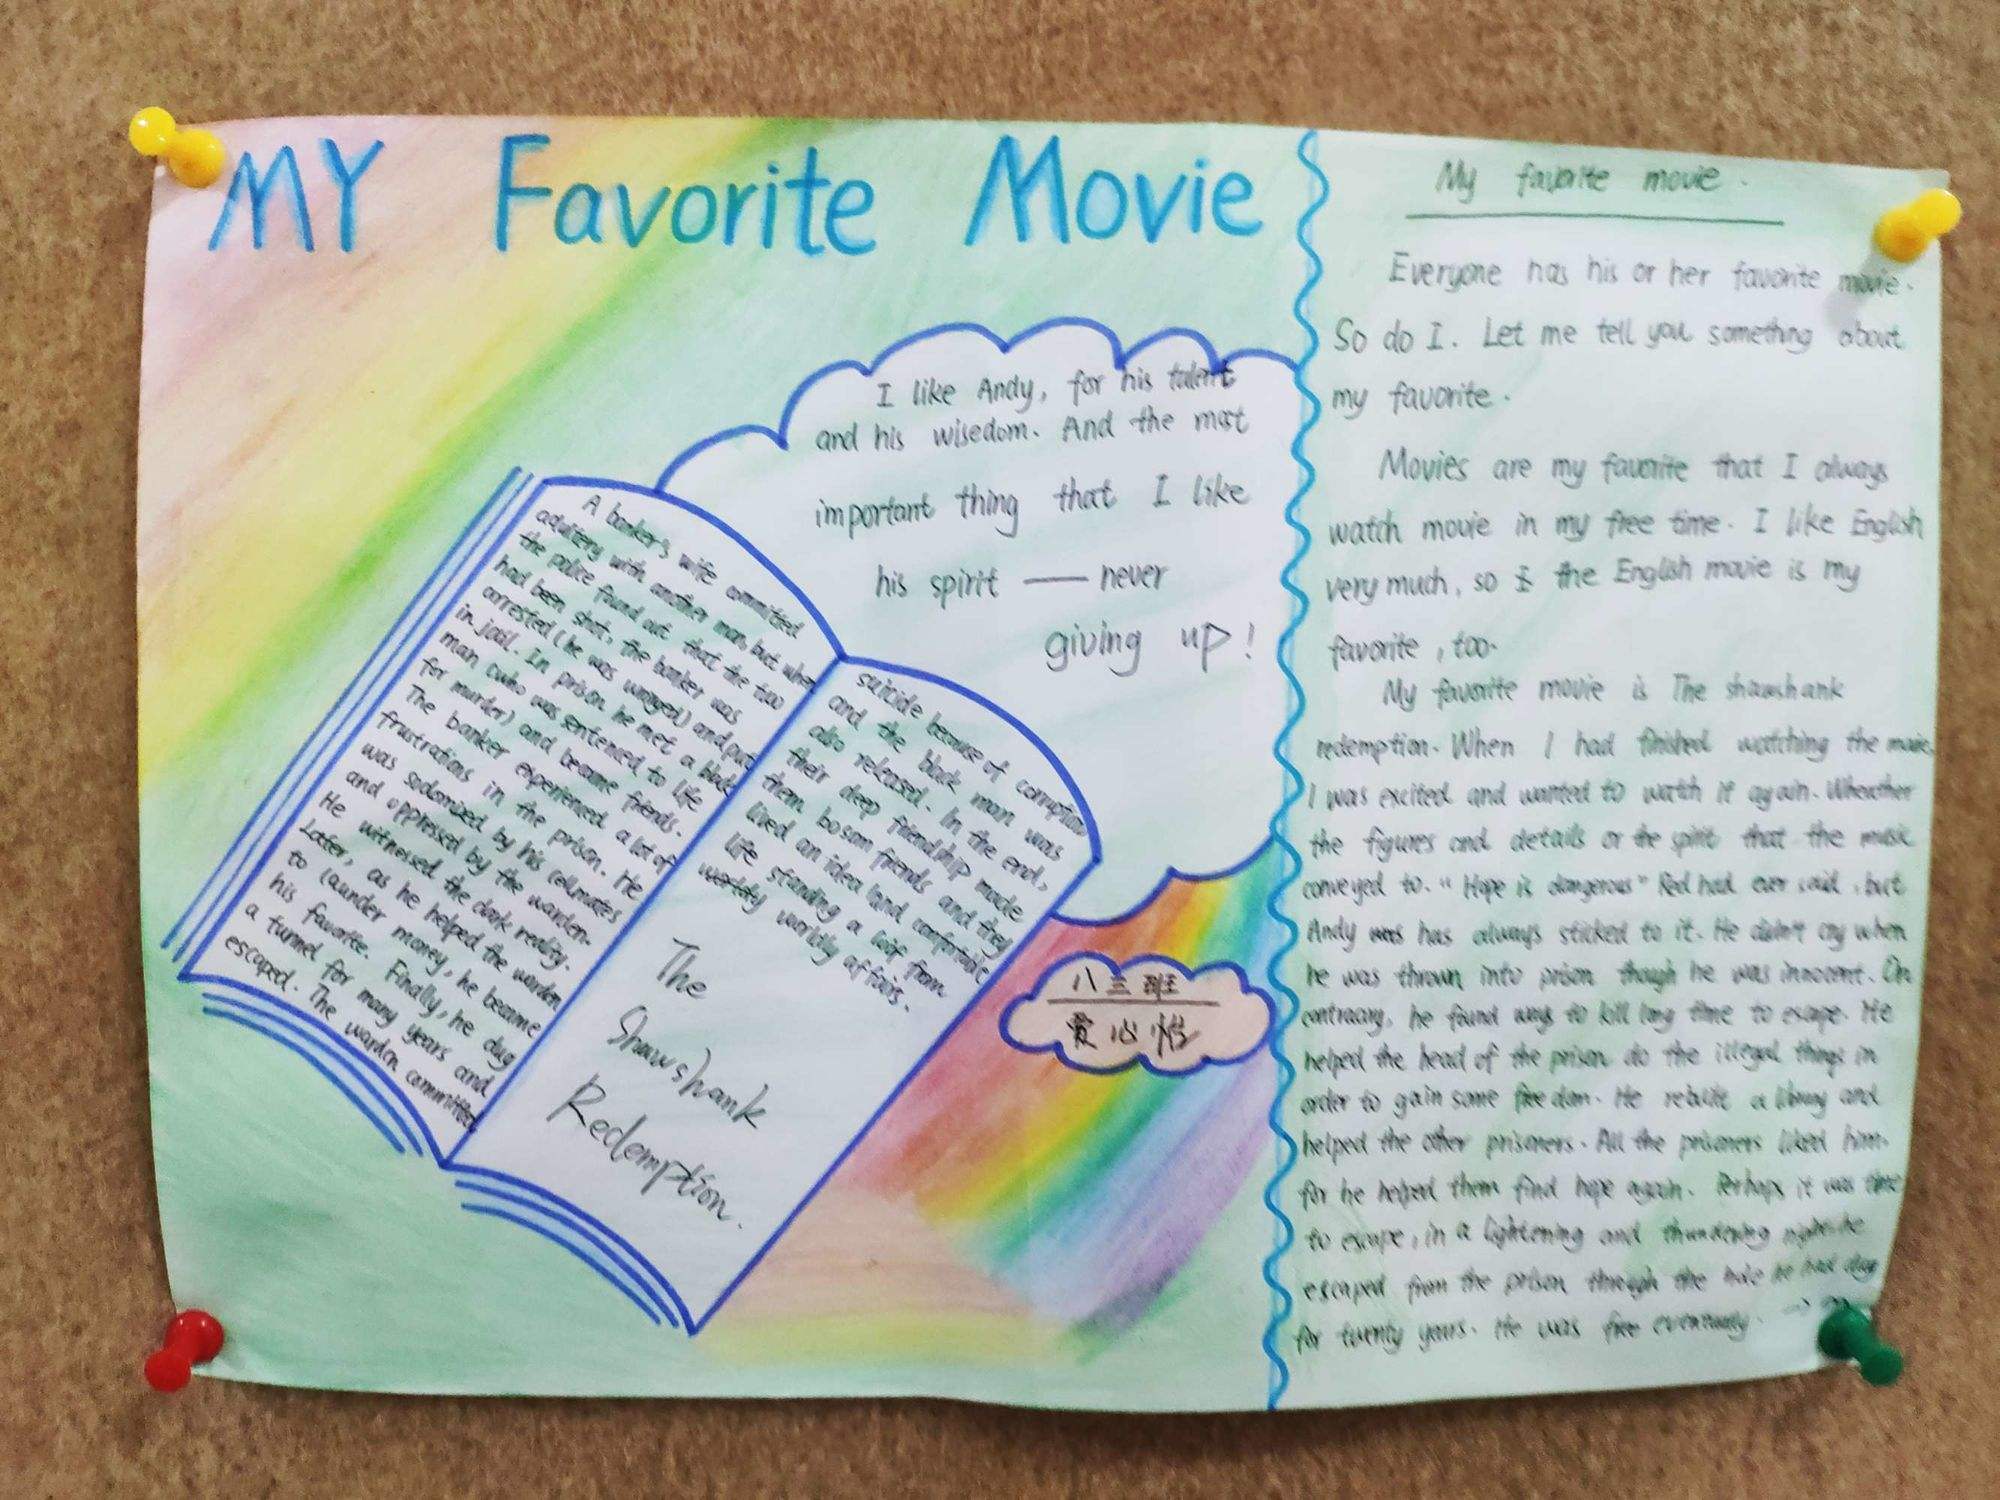 MY Favorite Movie
I like Andy, for his talent
and his wisedom. And the most
important thing that I like
his spirit — never
giving up!
A banker's wife committed
adultery with another man, but when
the police found out that the two
had been shot, the banker was
arrested (he was wronged) and put
in jail. In prison he met a black
man (who was sentenced to life
for murder) and became friends.
The banker experienced a lot of
frustrations in the prison. He
was sodomized by his cellmates
and oppressed by the warden.
He witnessed the dark reality.
Later, as he helped the warden
to launder money, he became
his favorite. Finally, he dug
a tunnel for many years and
escaped. The warden committed
suicide because of corruption
and the black man was
also released. In the end,
their deep friendship made
them bosom friends and they
lived an idea land comfortable
life standing a loof from
worldly affairs.
The
Shawshank
Redemption.
八三班
My favorite movie.
Everyone has his or her favorite movie.
So do I. Let me tell you something about
my favorite.
Movies are my favorite that I always
watch movie in my free time. I like English
very much, so the English movie is my
favorite, too.
My favorite movie is The shawshank
redemption. When I had finished watching the movie,
I was excited and wanted to watch it again. Wheather
the figures and details or the spirit that the music
conveyed to. "Hope is dangerous" Red had ever said, but
Andy has always sticked to it. He didn't cry when
he was thrown into prison though he was innocent. On
contracry, he found ways to kill long time to escape. He
helped the head of the prison do the illegal things in
order to gain some freedom. He rebuilt a library and
helped the other prisoners. All the prisoners liked him.
for he helped them find hope again. Perhaps it was time
to escape, in a lightening and thundering night he
escaped from the prison through the hole he had dug
for twenty years. He was free eventually.